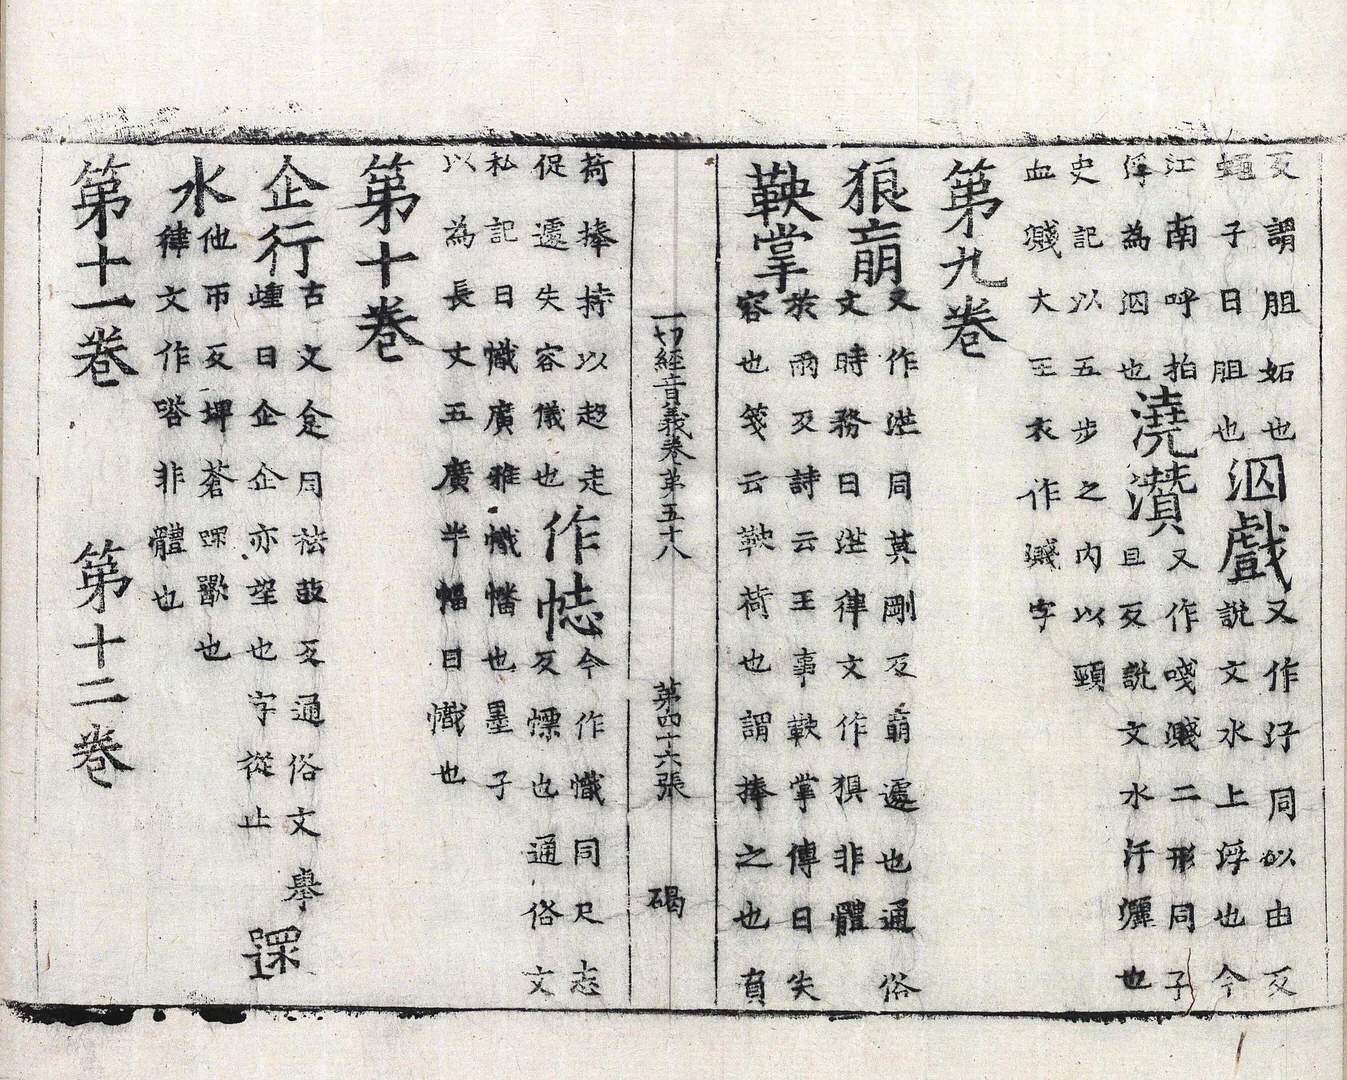 反謂胆妬也
蠅子曰胆也
泅戲
又作汓同似由反
説文水上浮也今
江南呼拍
浮為泅也
澆灒
又作唛濺二形同子
且反説文水汙灑也
史記以五步之内以頸
血濺大王衣作濺字
第九卷
狼䓑
又作㳸同莫剛反萠遽也通俗
文時務曰㳸律文作狽非體
鞅掌
於兩反詩云王事鞅掌傳曰失
容也箋云鞅荷也謂捧之也負
一切經音義卷第五十八 第四十六張 碣
荷捧持以趍走
促遽失容儀也
作𢘆
今作幟同尺志
反幖也通俗文
私記曰幟廣雅幟幡也墨子
以為長丈五廣半幅曰幟也
第十卷
企行
古文𧿁同袪豉反通俗文舉
踵曰企企亦望也字從止
𨗴水
他帀反埤蒼𨗴歠也
律文作嗒非體也
第十一卷
第十二卷